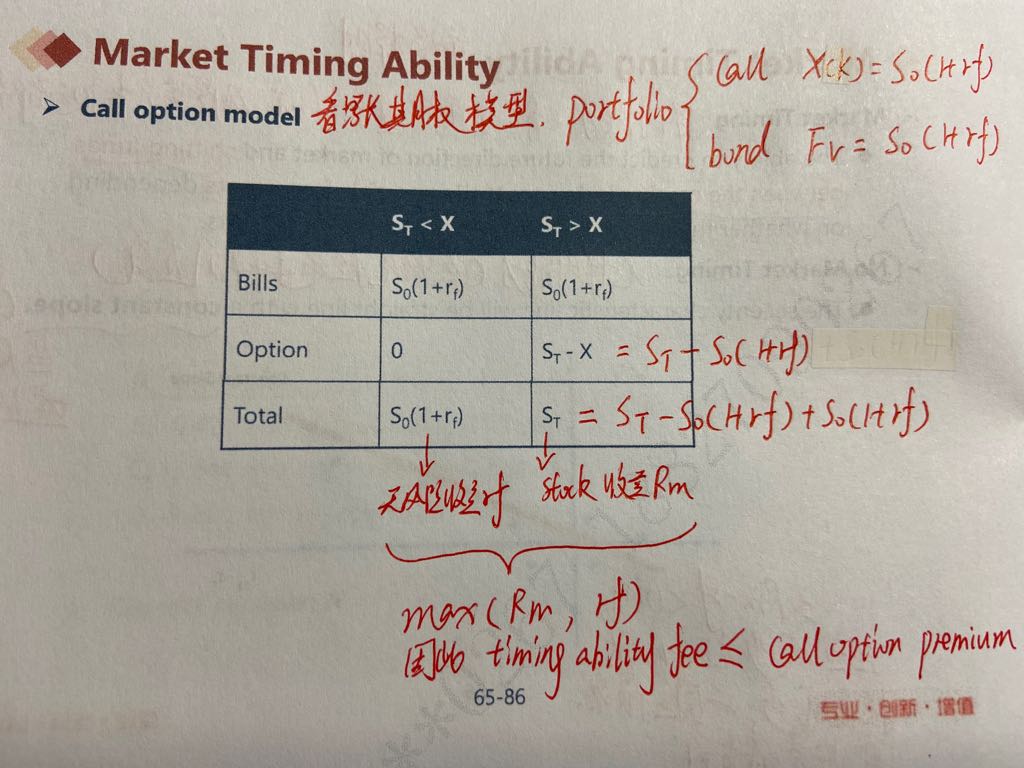 Market Timing Ability
➤ Call option model 看涨期权模型. portfolio { Call X(K) = S₀(1+rf)
bond FV = S₀(1+rf)
S_T < X S_T > X
Bills S₀(1+r_f) S₀(1+r_f)
Option 0 S_T - X = S_T - S₀(1+rf)
Total S₀(1+r_f) S_T = S_T - S₀(1+rf) + S₀(1+rf)
无风险收益rf stock 收益Rm
max(Rm, rf)
因此 timing ability fee ≤ Call option premium
65-86
专业·创新·增值